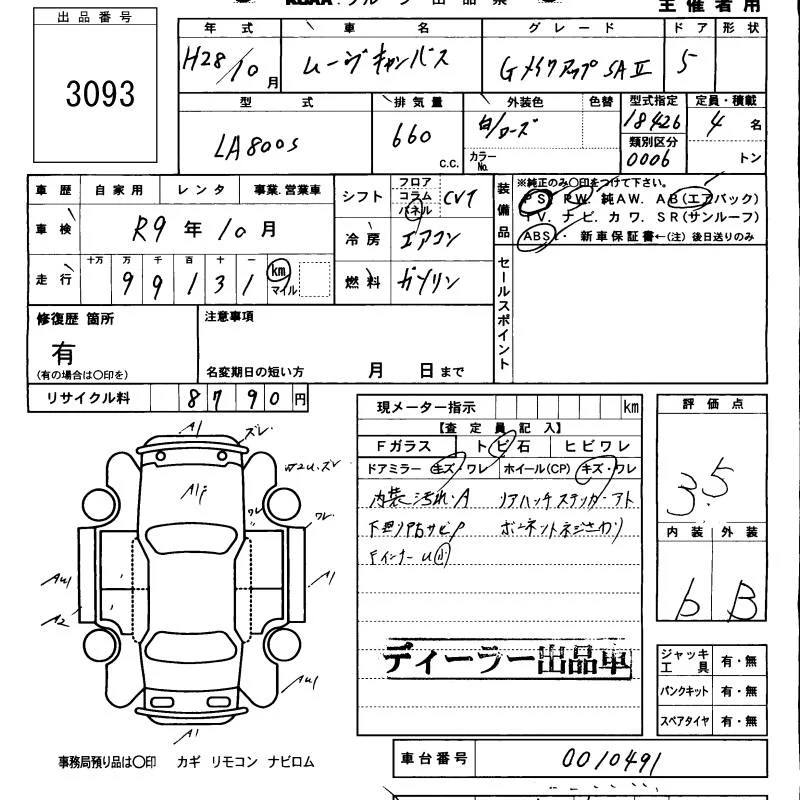 主催者用
出品番号
3093
年式 車名 グレード ドア 形状
H28/10月 ムーヴキャンバス GメイクアップSAⅡ 5
型式 排気量 外装色 色替 型式指定 定員・積載
LA800S 660 c.c. 白/ローズ 18426 4名
カラーNo. 類別区分 0006 トン
車歴 自家用 レンタ 事業.営業車
車検 R9年10月
走行 十万 万 千 百 十 一
99131 km マイル
シフト フロア コラム パネル CVT
冷房 エアコン
燃料 ガソリン
装備品 ※純正のみ〇印をつけて下さい。
PS. PW. 純AW. AB(エアバック)
TV. ナビ. カワ. SR(サンルーフ)
ABS. 新車保証書←(注) 後日送りのみ
セールスポイント
修復歴 箇所
有
(有の場合は〇印を)
注意事項
名変期日の短い方 月 日まで
リサイクル料 8790円
現メーター指示 km
【査定員記入】
Fガラス トビ石 ヒビワレ
ドアミラー キズ・ワレ ホイール(CP) キズ・ワレ
内装汚れ.A リアハッチステッカーアト
下廻り陥サビP ボーネットネジさわり
FインナーU小
ディーラー出品車
評価点
3.5
内装 外装
b B
ジャッキ工具 有・無
パンクキット 有・無
スペアタイヤ 有・無
A1 ズレ
A1P
ワレ
ワレ
AW1
A2
A1
AW1
A1
事務局預り品は〇印 カギ リモコン ナビロム
車台番号 0010491